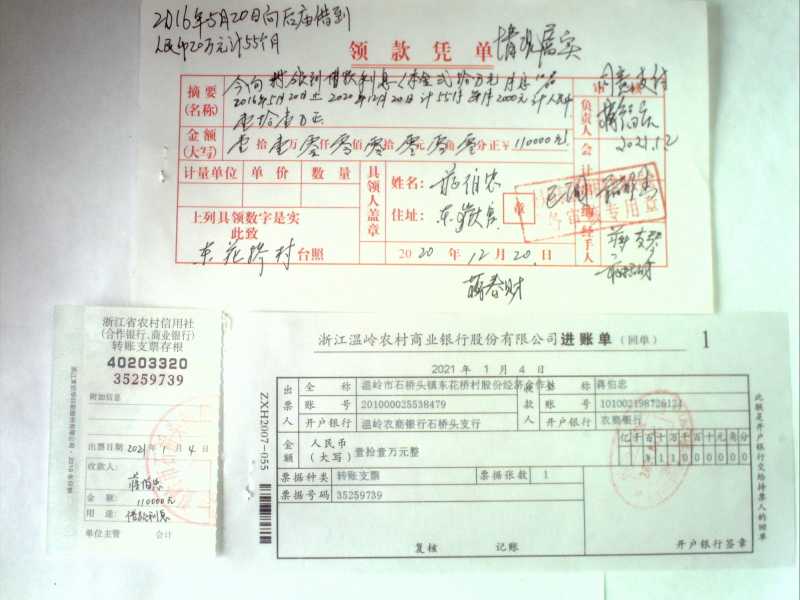 2016年5月20日向后庙借到
人民币20万元计55个月
情况属实
领款凭单
摘要(名称)
今向村领到借款利息(本金贰拾万元
2016年5月20日止2020年12月20日计55个月每月2000元计人民币
壹拾壹万正
金额(大写)
壹拾壹万零仟零佰零拾零元零角零分正￥110000元
计量单位 单价 数量
具领人盖章
姓名:蒋伯忠
住址:东
章
上列具领数字是实
此致
东花桥村台照
2020年12月20日
蒋春财
同意支付
负责人
2021.1.2
会计
经手人
浙江省农村信用社
(合作银行、商业银行)
转账支票存根
40203320
35259739
附加信息
出票日期 2021年1月4日
收款人:
蒋伯忠
金额:110000元
用途:借款利息
单位主管 会计
ZXH2007-055
浙江温岭农村商业银行股份有限公司进账单(回单) 1
2021年1月4日
出票人 全称 温岭市石桥头镇东花桥村股份经济合作社
账号 201000025538479
开户银行 温岭农商银行石桥头支行
款 全称 蒋伯忠
账号 101002198726124
开户银行 农商银行
金额 人民币(大写) 壹拾壹万元整
亿千百十万千百十元角分
￥11000000
票据种类 转账支票 票据张数 1
票据号码 35259739
复核 记账
开户银行签章
此联是开户银行交给持票人的回单